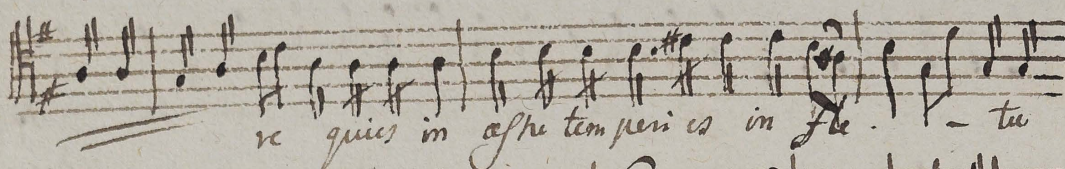 re quies in æstu temperi es in fle - tu